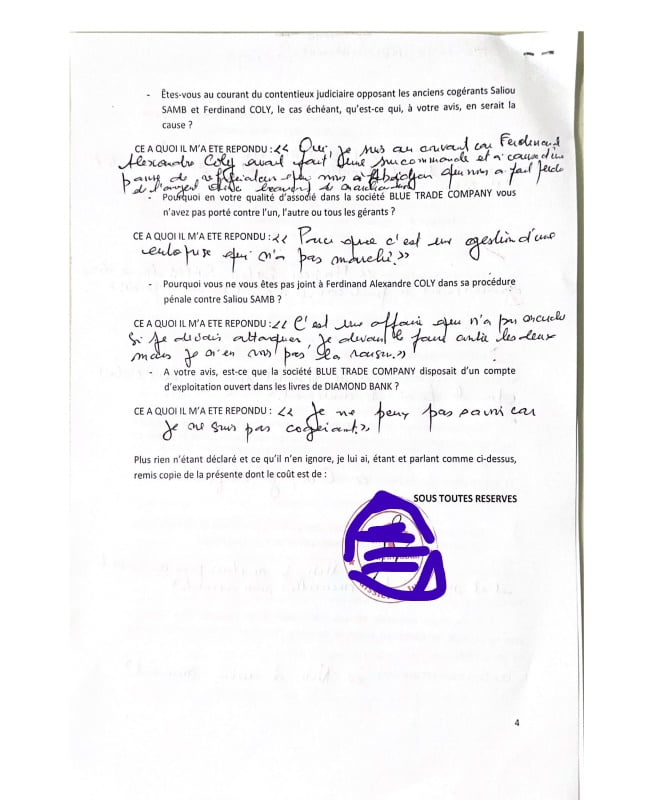 - Êtes-vous au courant du contentieux judiciaire opposant les anciens cogérants Saliou
SAMB et Ferdinand COLY, le cas échéant, qu'est-ce qui, à votre avis, en serait la
cause ?
CE A QUOI IL M'A ETE REPONDU : << Oui, je suis au courant car Ferdinand
Alexandre Coly avait fait une
panne de
de l'argent
- Pourquoi en votre qualité d'associé dans la société BLUE TRADE COMPANY vous
n'avez pas porté contre l'un, l'autre ou tous les gérants ?
CE A QUOI IL M'A ETE REPONDU : << Parce que c'est une gestion d'une
qui n'a pas marché >>
- Pourquoi vous ne vous êtes pas joint à Ferdinand Alexandre COLY dans sa procédure
pénale contre Saliou SAMB ?
CE A QUOI IL M'A ETE REPONDU : << C'est une affaire qui n'a pu
si je devais attaquer, je devais le faire les deux
mais je n'en pas la raison >>
- A votre avis, est-ce que la société BLUE TRADE COMPANY disposait d'un compte
d'exploitation ouvert dans les livres de DIAMOND BANK ?
CE A QUOI IL M'A ETE REPONDU : << Je ne peux pas savoir car
je ne suis pas cogérant >>
Plus rien n'étant déclaré et ce qu'il n'en ignore, je lui ai, étant et parlant comme ci-dessus,
remis copie de la présente dont le coût est de :
SOUS TOUTES RESERVES
4